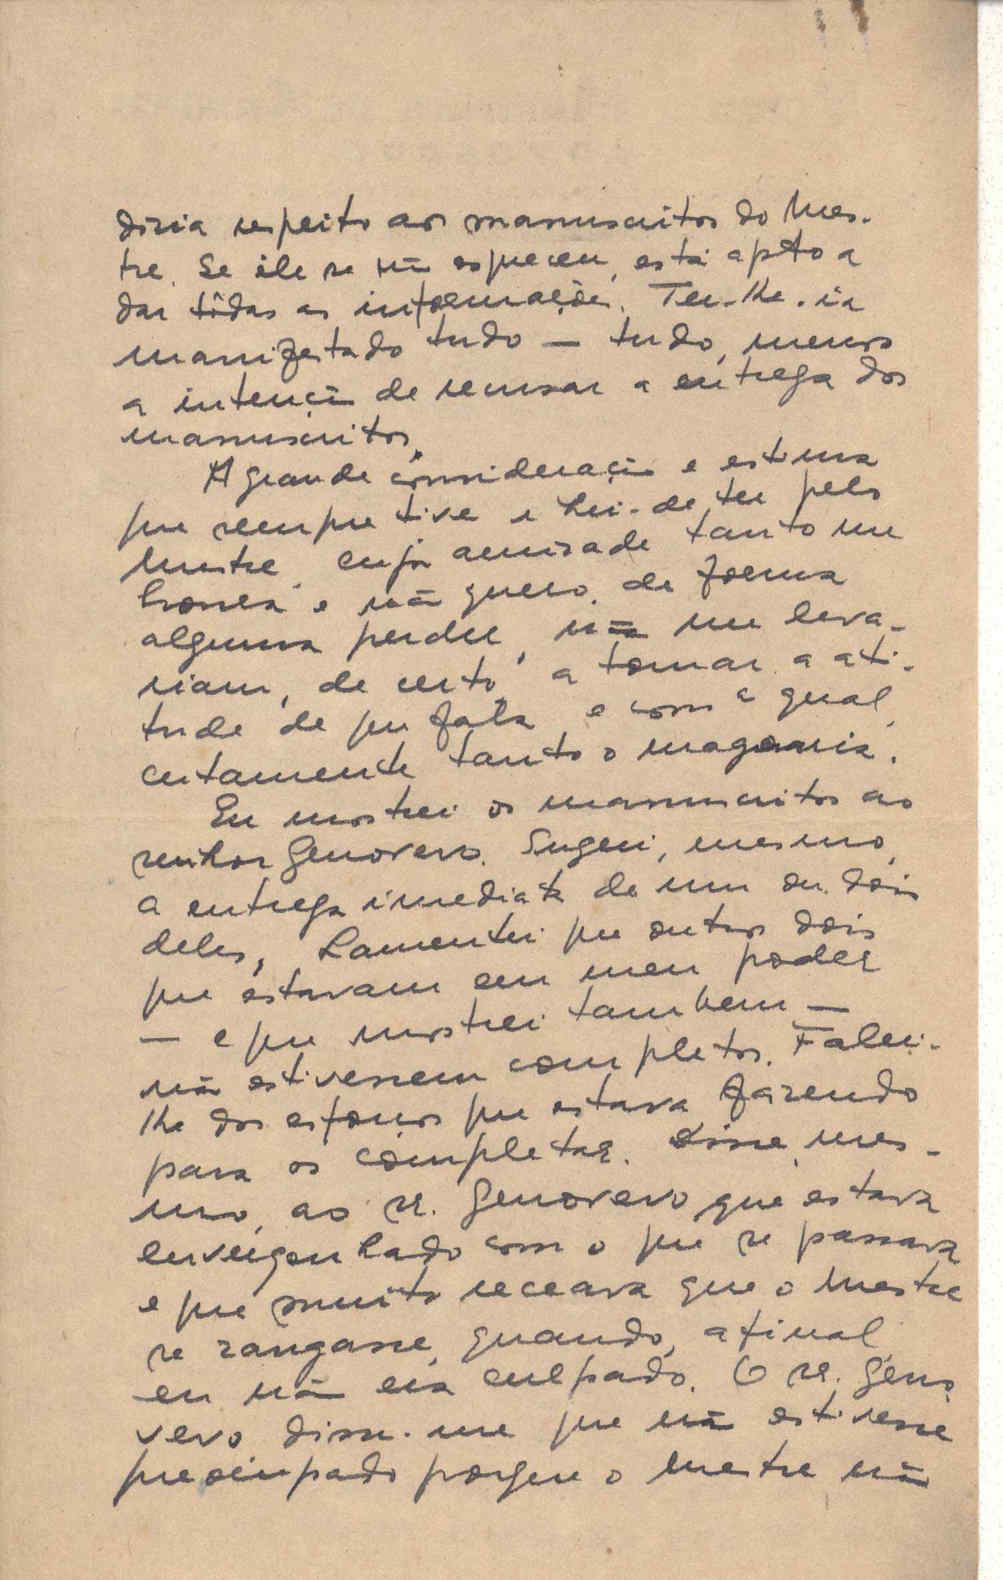 diria respeito aos manuscritos do Mes-
tre. Se êle se não esqueceu, está apto a
dar tôdas as informações. Ter-lhe-ia
manifestado tudo — tudo, menos
a intenção de recusar a entrega dos
manuscritos.
A grande consideração e estima
que sempre tive e hei-de ter pelo
Mestre, cuja amizade tanto me
honra e não quero, de forma
alguma perder, não me leva-
riam, de certo, a tomar a ati-
tude de que fala e com a qual,
certamente tanto o magoaria.
Eu mostrei os manuscritos ao
senhor Genovevo. Sugeri, mesmo,
a entrega imediata de um ou dois
deles, Lamentei que outros dois
que estavam em meu poder
— e que mostrei tambem —
não estivessem completos. Falei-
lhe dos esforços que estava fazendo
para os completar. Disse, mes-
mo, ao sr. Genovevo que estava
envergonhado com o que se passava
e que muito receava que o Mestre
se zangasse, quando, afinal,
eu não era culpado. O sr. Geno
vevo disse-me que não estivesse
preocupado porque o Mestre não